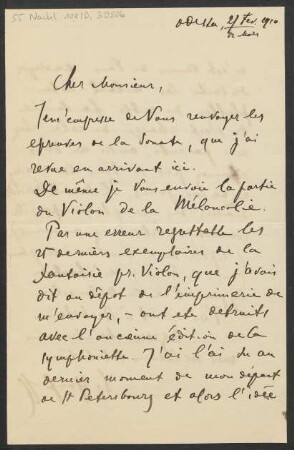 55 Nachl 100/D,
Odessa, Fev. 1910
Mars
Cher Monsieur,
Je m'empresse de Vous renvoyer les
épreuves de la Sonate, que j'ai
revue en arrivant ici.
De même je Vous envoie la partie
du Violon de la Mélancolie.
Par une erreur regrettable les
25 derniers exemplaires de la
Fantaisie pr. Violon, que j'avais
dit au dépot de l'imprimerie de
m'envoyer, - ont eté detruits
avec l'ancienne édition de la
Symphoniette. J'ai l'ai su au
dernier moment de mon départ
de St Petersbourg et alors l'idée